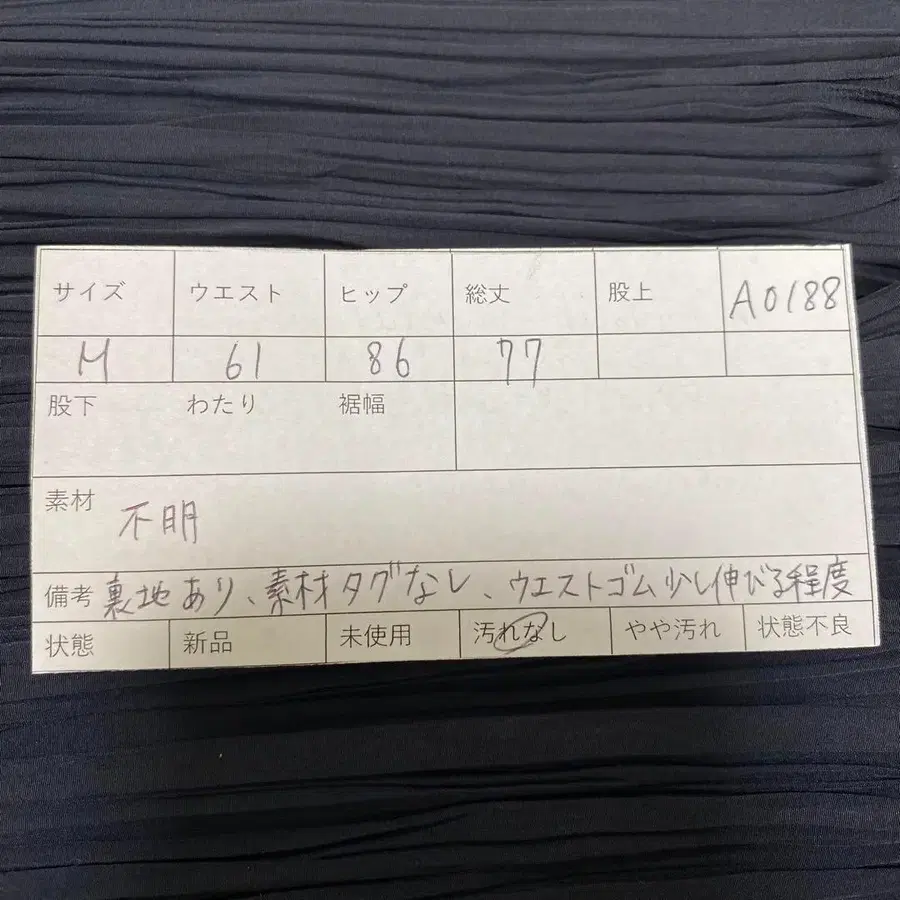 サイズ ウエスト ヒップ 総丈 股上 A0188
M 61 86 77
股下 わたり 裾幅
素材 不明
備考 裏地あり、素材タグなし、ウエストゴム少し伸びる程度
状態 新品 未使用 汚れなし やや汚れ 状態不良